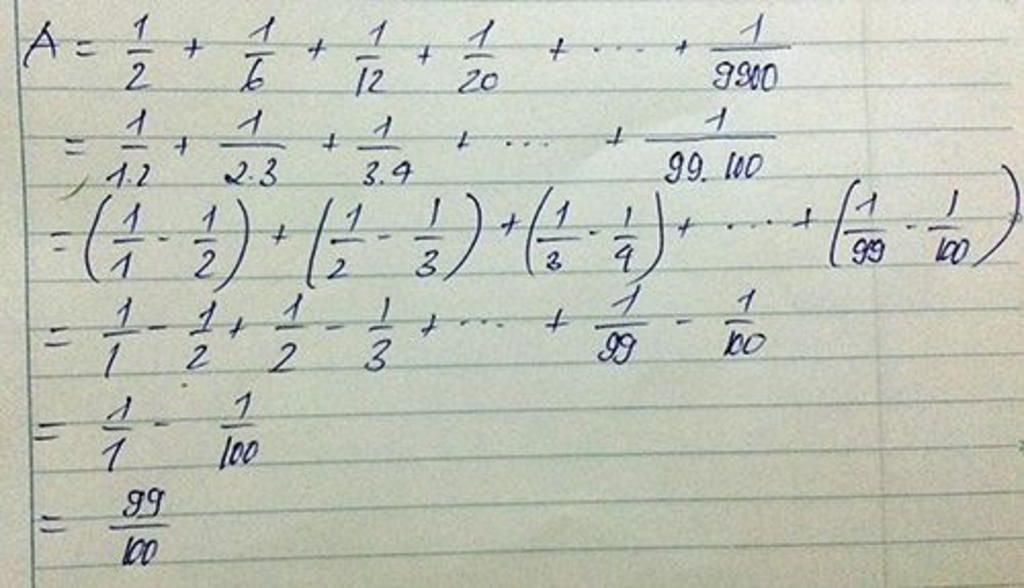 A = 1/2 + 1/6 + 1/12 + 1/20 + .... + 1/9900
= 1/1.2 + 1/2.3 + 1/3.4 + .... + 1/99.100
= (1/1 - 1/2) + (1/2 - 1/3) + (1/3 - 1/4) + .... + (1/99 - 1/100)
= 1/1 - 1/2 + 1/2 - 1/3 + .... + 1/99 - 1/100
= 1/1 - 1/100
= 99/100